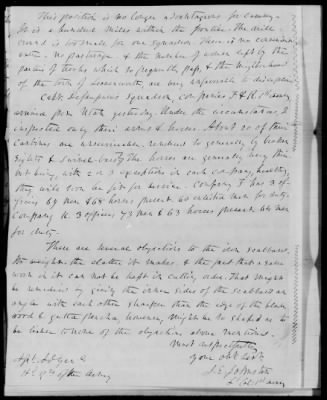 This position is no longer advantageous for cavalry.
It is a hundred miles within the frontier. The drill
ground is too small for one squadron. There is no
out. No pasturage & the number of women left by the
parties of troops which so frequently pass, & the neighborhood
of the town of Leavenworth, are very unfavorable to discipline
Capt. squadron, companies F & K 1st cavy
arrived from Utah yesterday. Under the circumstances I
inspected only their arms & horses. About 20 of their
carbines are unserviceable, rendered so generally by broken
sights & swivel bars. The horses are generally very thin.
but being, with 2 or 3 exceptions in each company, healthy,
they will soon be fit for service. Company F has 3 of-
ficers 69 men & 68 horses present 60 enlisted men for duty.
Company K. 3 officers 73 men & 63 horses present 64 men
for duty.
There are several objections to the iron scabbard.
Its weight, the clatter it makes, & the fact that a sabre
worn in it can not be kept in cutting order. That might
be remedied by giving the inner sides of the scabbard an
angle with each other sharper than the edge of the blade
wood & gutta percha, however, might be so shaped as to
be liable to none of the objections above mentioned.
Most respectfully
Your obt. servt.
J. E. Johnston
Lt. Col. 1st cavy
Asst. Adj. Gen.
Hd. Qrs. of the Army